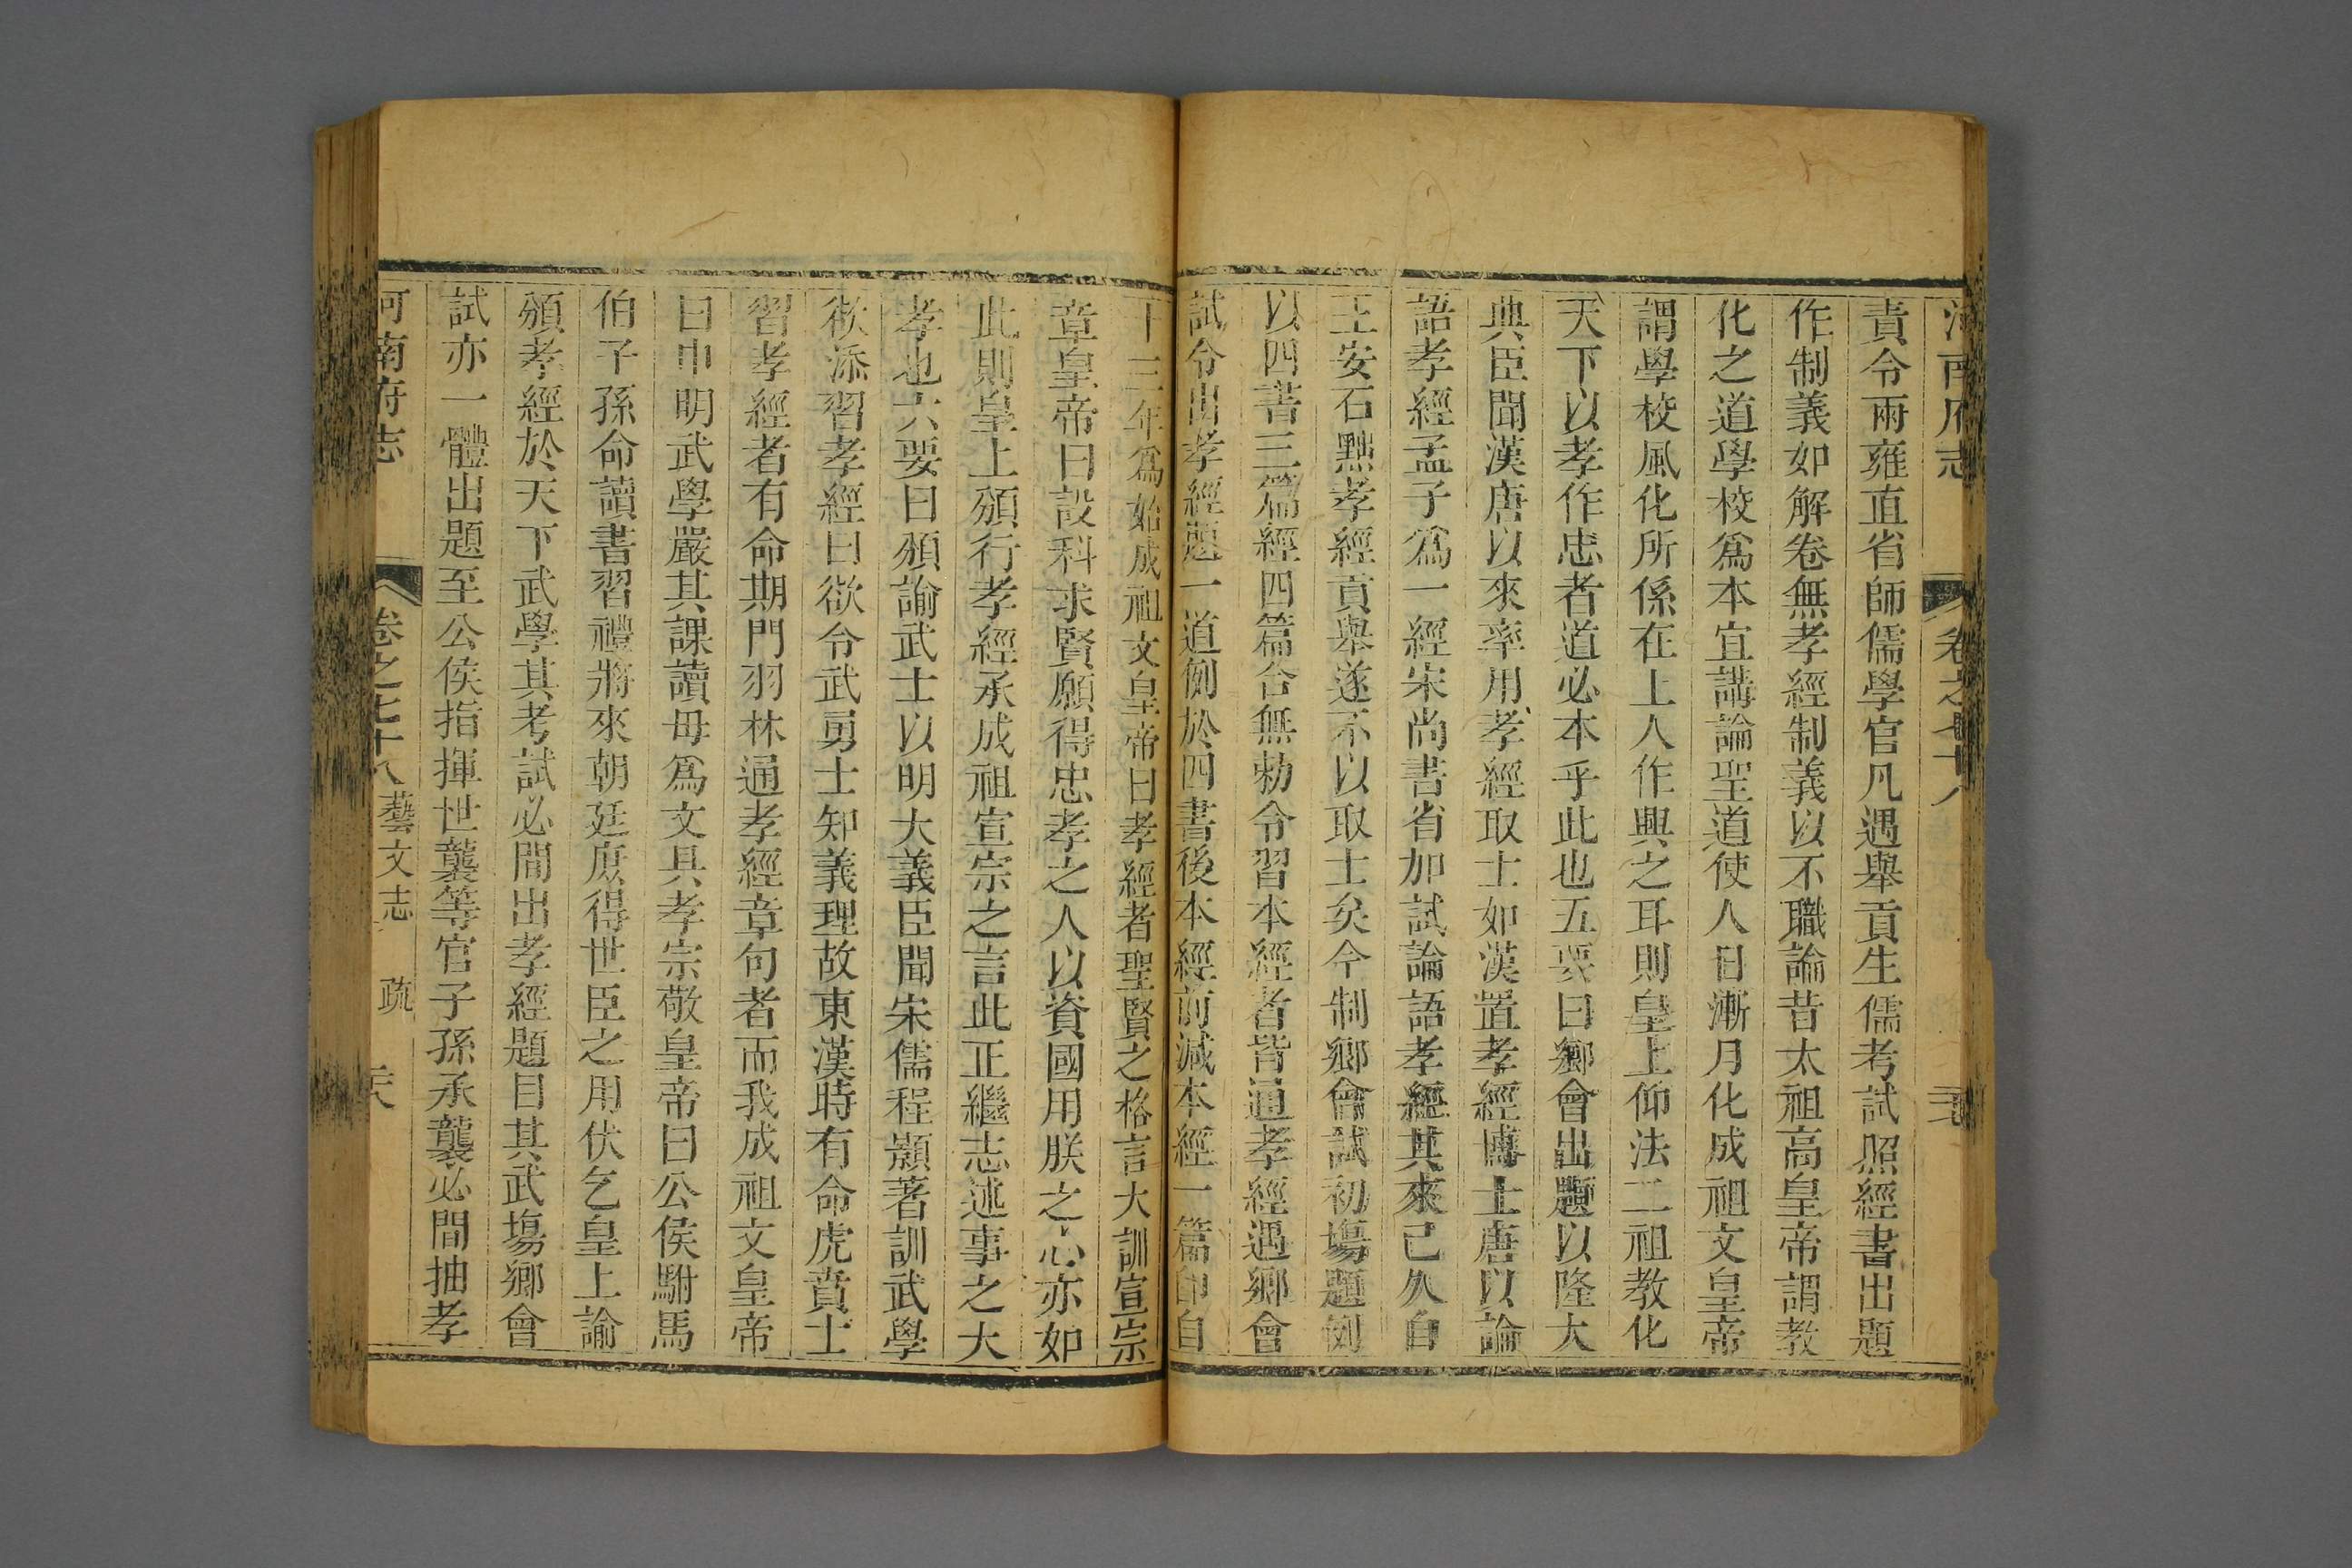 河南府志 卷之七十八
責令兩雍直省師儒學官凡遇舉貢生儒考試照經書出題
作制義如解卷無孝經制義以不職論昔太祖高皇帝謂教
化之道學校爲本宜講論聖道使人日漸月化成祖文皇帝
謂學校風化所係在上人作興之耳則皇上仰法二祖教化
天下以孝作忠者道必本乎此也五要曰鄉會出題以隆大
典臣聞漢唐以來率用孝經取士如漢置孝經博士唐以論
語孝經孟子爲一經宋尚書省加試論語孝經其來已久自
王安石黜孝經貢舉遂不以取士矣今制鄉會試初塲題例
以四書三篇經四篇合無勅令習本經者皆通孝經遇鄉會
試令出孝經題一道例於四書後本經前減本經一篇卽自
十三年爲始成祖文皇帝曰孝經者聖賢之格言大訓宣宗
章皇帝曰設科求賢願得忠孝之人以資國用朕之心亦如
此則皇上頒行孝經承成祖宣宗之言此正繼志述事之大
孝也六要曰頒諭武士以明大義臣聞宋儒程顥著訓武學
欲添習孝經曰欲令武勇士知義理故東漢時有命虎賁士
習孝經者有命期門羽林通孝經章句者而我成祖文皇帝
曰申明武學嚴其課讀毋爲文具孝宗敬皇帝曰公侯駙馬
伯子孫命讀書習禮將來朝廷庶得世臣之用伏乞皇上諭
頒孝經於天下武學其考試必間出孝經題目其武塲鄉會
試亦一體出題至公侯指揮世襲等官子孫承襲必間抽孝
河南府志 卷之七十八 藝文志 疏 六